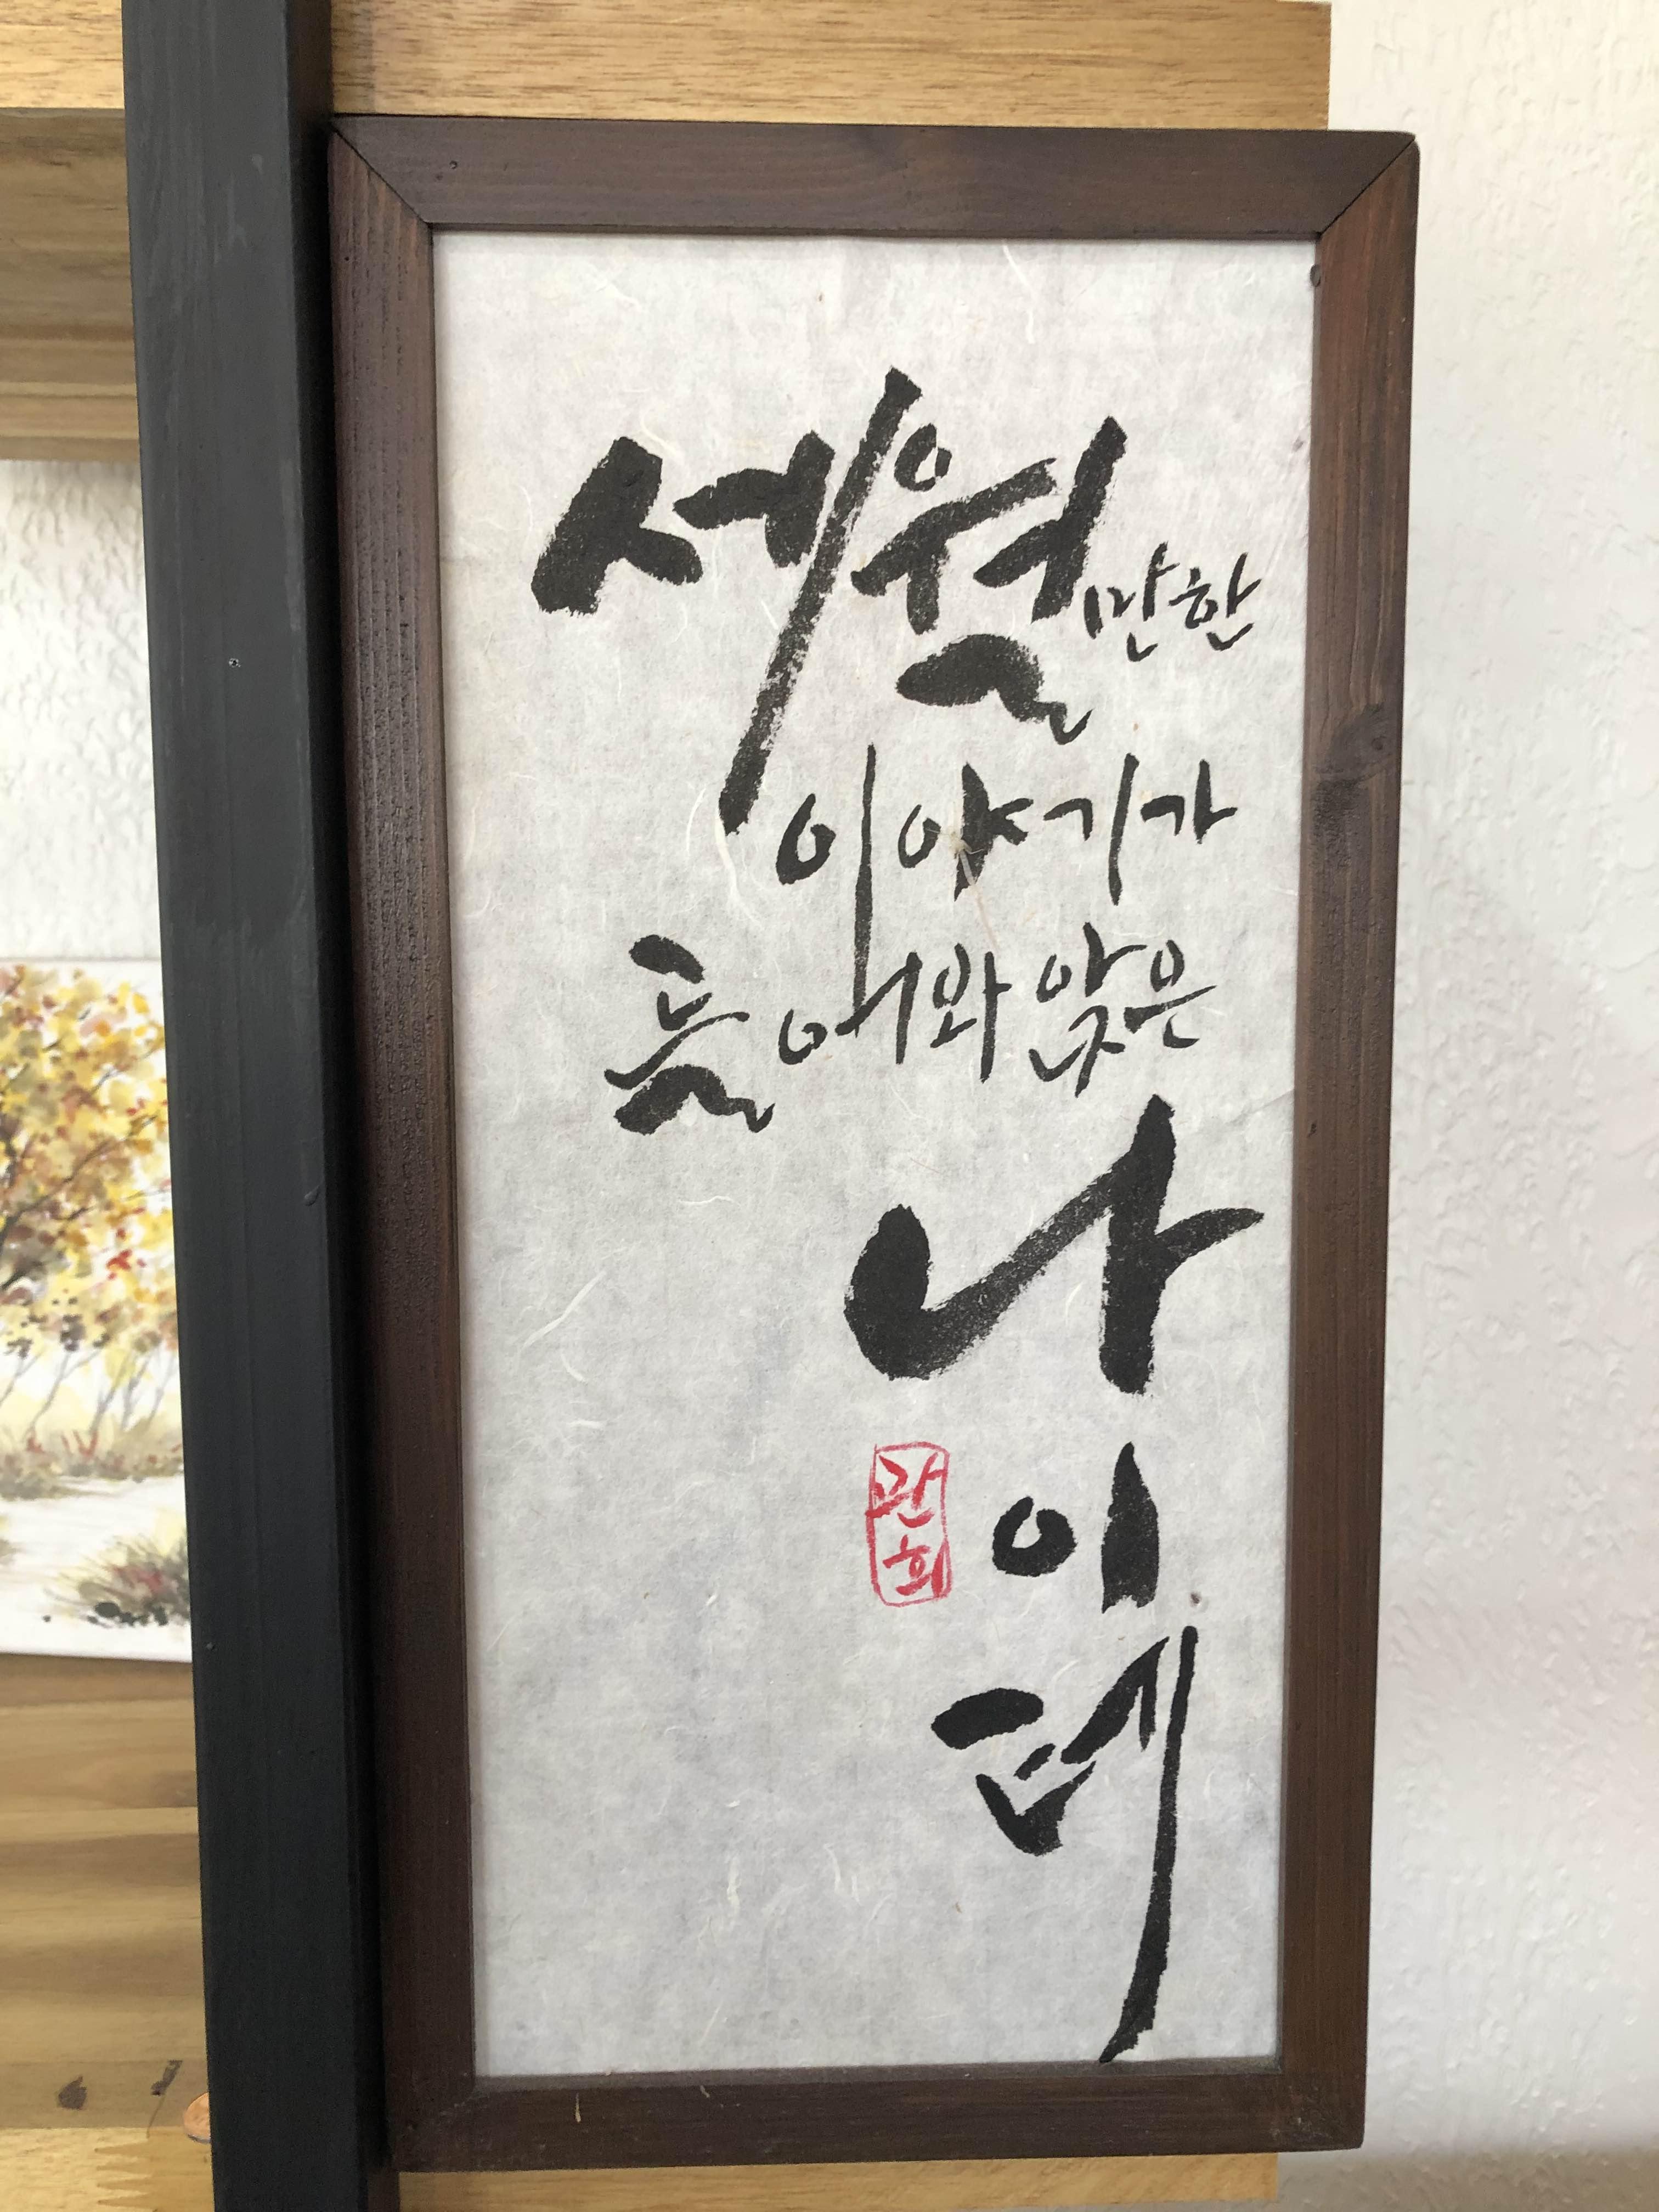 세월만한
이야기가
들어와 앉은
나
이
테
관희